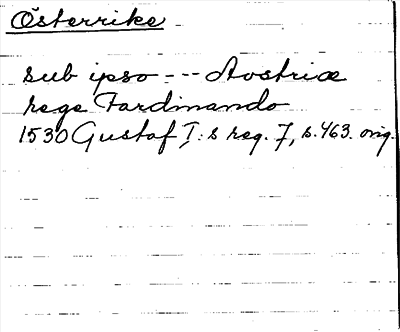 Österrike
sub ipso --- Avstriæ
rege Fardinando
1530 Gustaf I:s reg. 7, s. 463. orig.